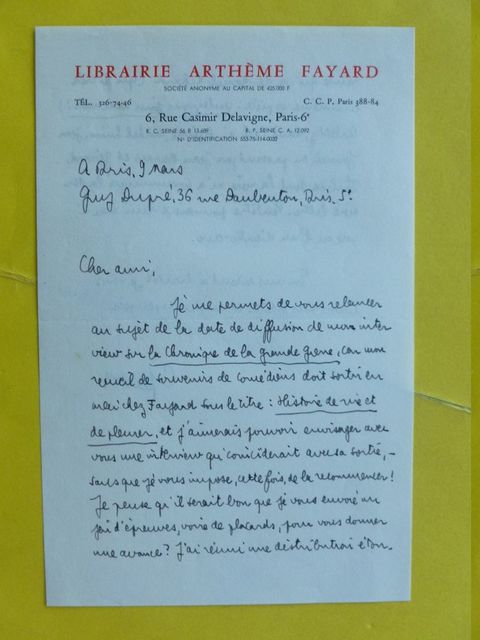 LIBRAIRIE ARTHÈME FAYARD
SOCIÉTÉ ANONYME AU CAPITAL DE 425.000 F
TÉL. 326-74-46 C. C. P. Paris 388-84
6, Rue Casimir Delavigne, Paris-6e
R. C. SEINE 56 B 13.659 R. P. SEINE C. A. 12.092
N° D'IDENTIFICATION 553-75-114-0032
A Paris, 9 mars
Guy Dupré, 36 rue Daubenton, Paris 5e
Cher ami,
Je me permets de vous relancer
au sujet de la date de diffusion de mon inter
view sur la Chronique de la grande guerre, car mon
recueil de souvenirs de comédiens doit sortir en
mai chez Fayard sous le titre : Histoire de rire et
de pleurer, et j'aimerais pouvoir envisager avec
vous une interview qui coïnciderait avec sa sortie, –
sans que je vous impose, cette fois, de la recommencer !
Je pense qu'il serait bon que je vous envoie un
jeu d'épreuves, voire de placards, pour vous donner
une avance ? J'ai réuni une distribution éton-